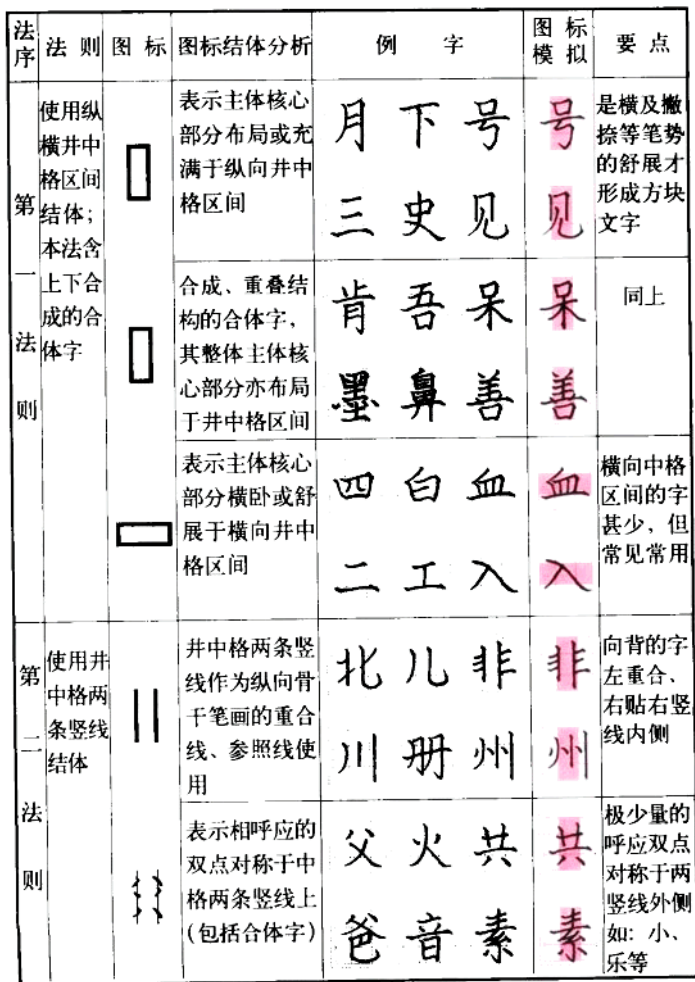 法序 法则 图标 图标结体分析 例字 图标模拟 要点
第一法则
使用纵
横井中
格区间
结体；
本法含
上下合
成的合
体字
表示主体核心
部分布局或充
满于纵向井中
格区间
月 下 号 号
三 史 见 见
是横及撇
捺等笔势
的舒展才
形成方块
文字
合成、重叠结
构的合体字，
其整体主体核
心部分亦布局
于井中格区间
肯 吾 呆 呆
墨 鼻 善 善
同上
表示主体核心
部分横卧或舒
展于横向井中
格区间
四 白 血 血
二 工 入 入
横向中格
区间的字
甚少，但
常见常用
第二法则
使用井
中格两
条竖线
结体
井中格两条竖
线作为纵向骨
干笔画的重合
线、参照线使
用
北 儿 非 非
川 册 州 州
向背的字
左重合、
右贴右竖
线内侧
表示相呼应的
双点对称于中
格两条竖线上
（包括合体字）
父 火 共 共
爸 音 素 素
极少量的
呼应双点
对称于两
竖线外侧
如：小、
乐等